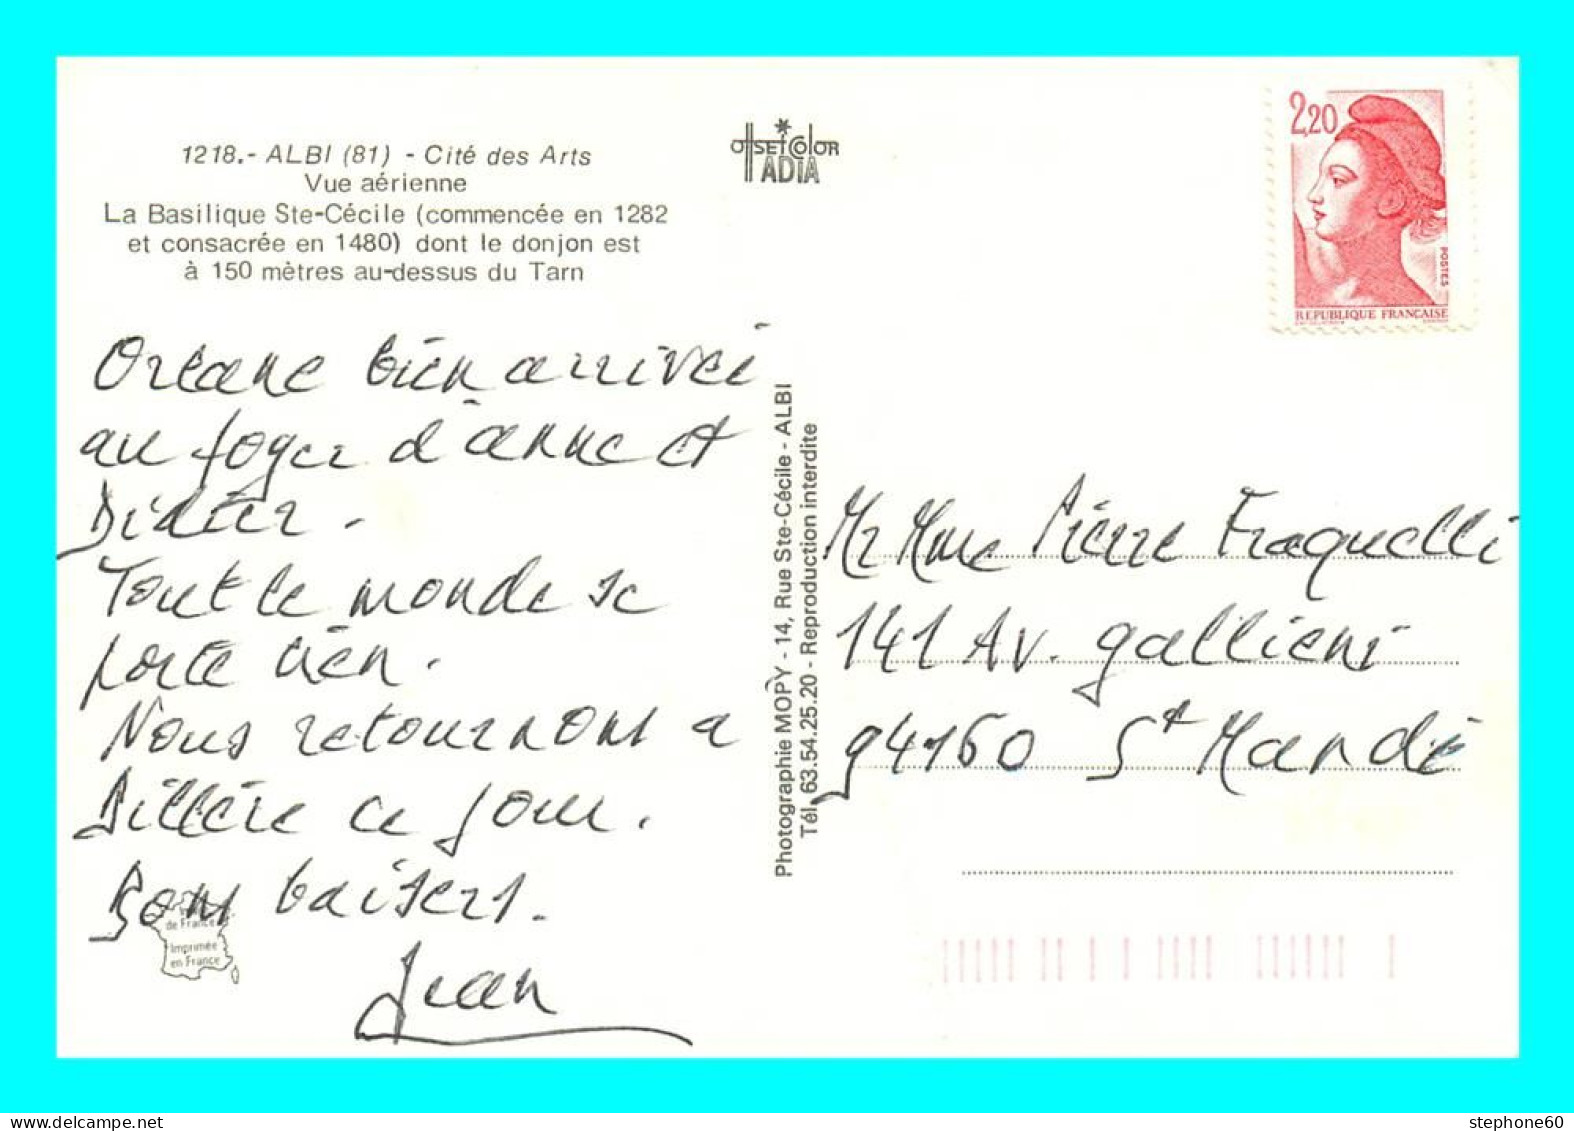 1218.- ALBI (81) - Cité des Arts
Vue aérienne
La Basilique Ste-Cécile (commencée en 1282
et consacrée en 1480) dont le donjon est
à 150 mètres au-dessus du Tarn
OffSEt COlOR
ADIA
2,20
POSTES
REPUBLIQUE FRANÇAISE
bien arrivée
au foyer d'anne et
Didier.
Tout le monde se
porte bien.
Nous retournons a
ce jour.
Bons baisers.
Jean
de France
Imprimée
en France
Photographie MOPY - 14, Rue Ste-Cécile - ALBI
Tél. 63.54.25.20 - Reproduction interdite
Mr Mme Pierre Fraquelli
141 Av. gallieni
94160 St Mandé
stephone60